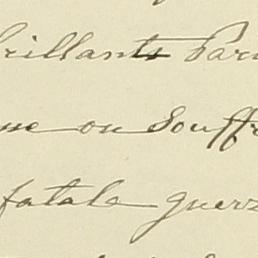 brillants Pari
ne ou Souffr
fatale guerr